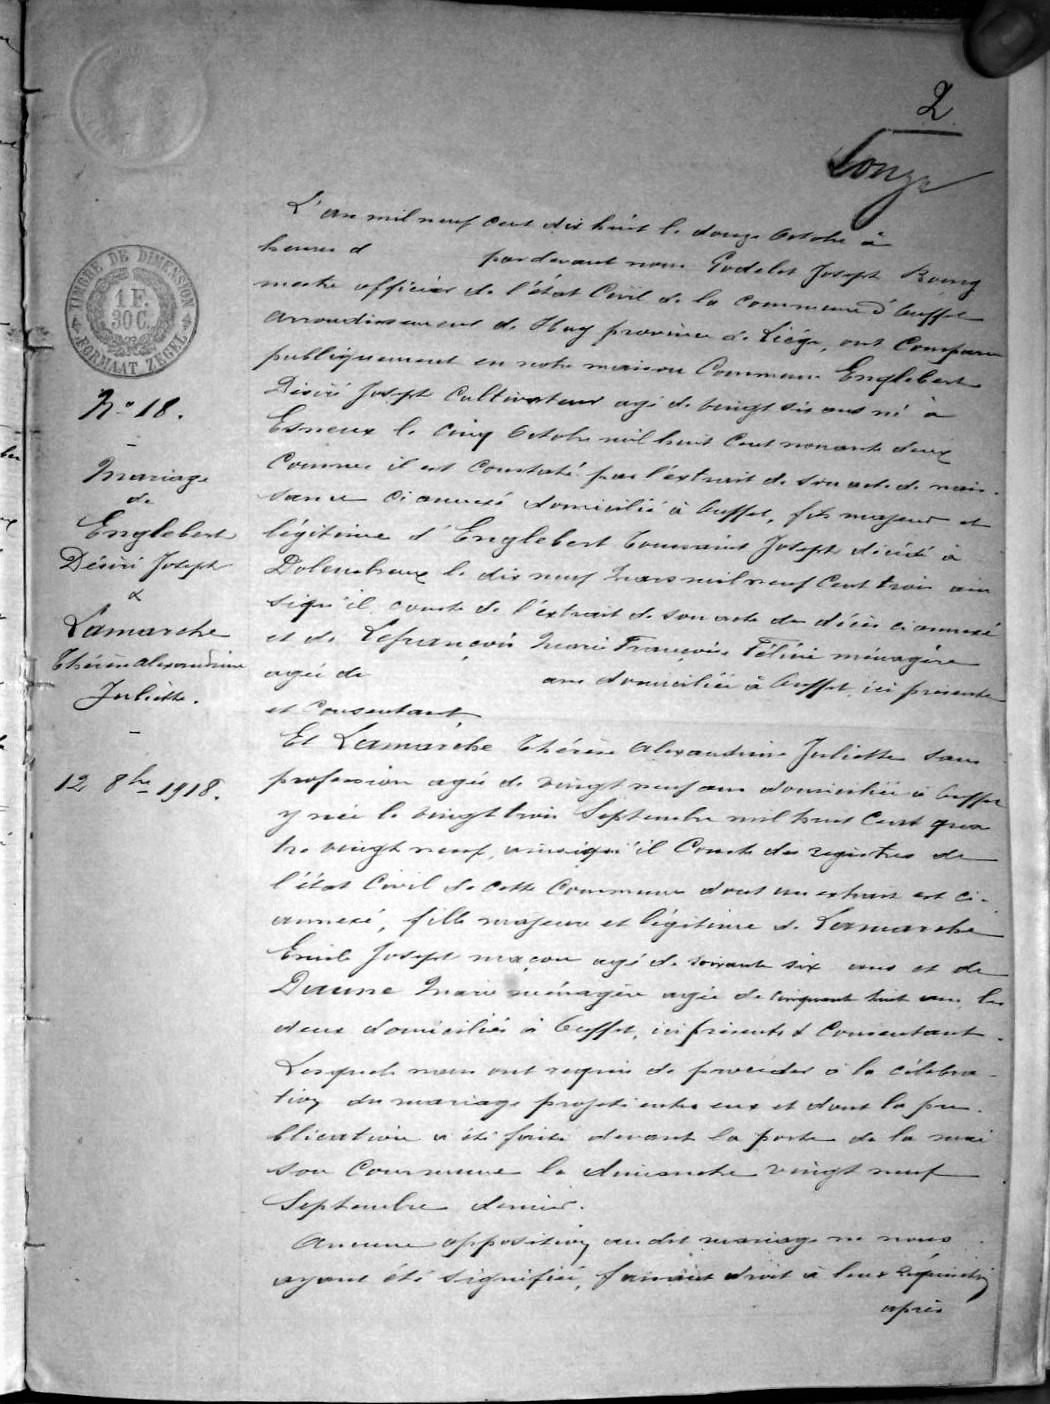 2
TIMBRE DE DIMENSION
1 F.
30 C.
FORMAAT ZEGEL
No 18.
Mariage
de
Englebert
Désiré Joseph
&
Lamarche
Thérèse Alexandrine
Juliette.
12 8bre 1918.
L'an mil neuf cent dix huit le douze Octobre à
heures d par devant nous Godelet Joseph Bourg
mestre officier de l'état Civil de la commune d'Ouffet
arrondissement de Huy province de Liége, ont Comparu
publiquement en notre maison Commune Englebert
Désiré Joseph Cultivateur agé de vingt six ans né à
Esneux le cinq Octobre mil huit cent nonante deux
comme il est constaté par l'extrait de son acte de nais-
sance ci annexé domicilié à Ouffet, fils majeur et
légitime d'Englebert Toussaint Joseph décédé à
Dolembreux le dix neuf Mars mil neuf Cent trois ain
si qu'il conste de l'extrait de son acte de décès ci annexé
et de Lefrançois Marie Françoise Féline ménagère
agée de ans domiciliée à Ouffet, ici présente
et Consentant
Et Lamarche Thérèse Alexandrine Juliette sans
profession agée de vingt neuf ans domiciliée à Ouffet
y née le vingt trois Septembre mil huit Cent qua
tre vingt neuf, ainsi qu'il Conste des registres de
l'état Civil de cette Commune dont un extrait est ci-
annexé, fille majeure et légitime de Lamarche
Emile Joseph maçon agé de soixante six ans et de
Daune Marie ménagère agée de cinquante huit ans, les
deux domiciliés à Ouffet, ici présents & Consentant.
Lesquels nous ont requis de procéder à la célébra-
tion du mariage projeté entre eux et dont la pu-
blication a été faite devant la porte de la mai
son Commune le dimanche vingt neuf
Septembre dernier.
Aucune opposition au dit mariage ne nous
ayant été signifiée, faisant droit à leur réquisition
après